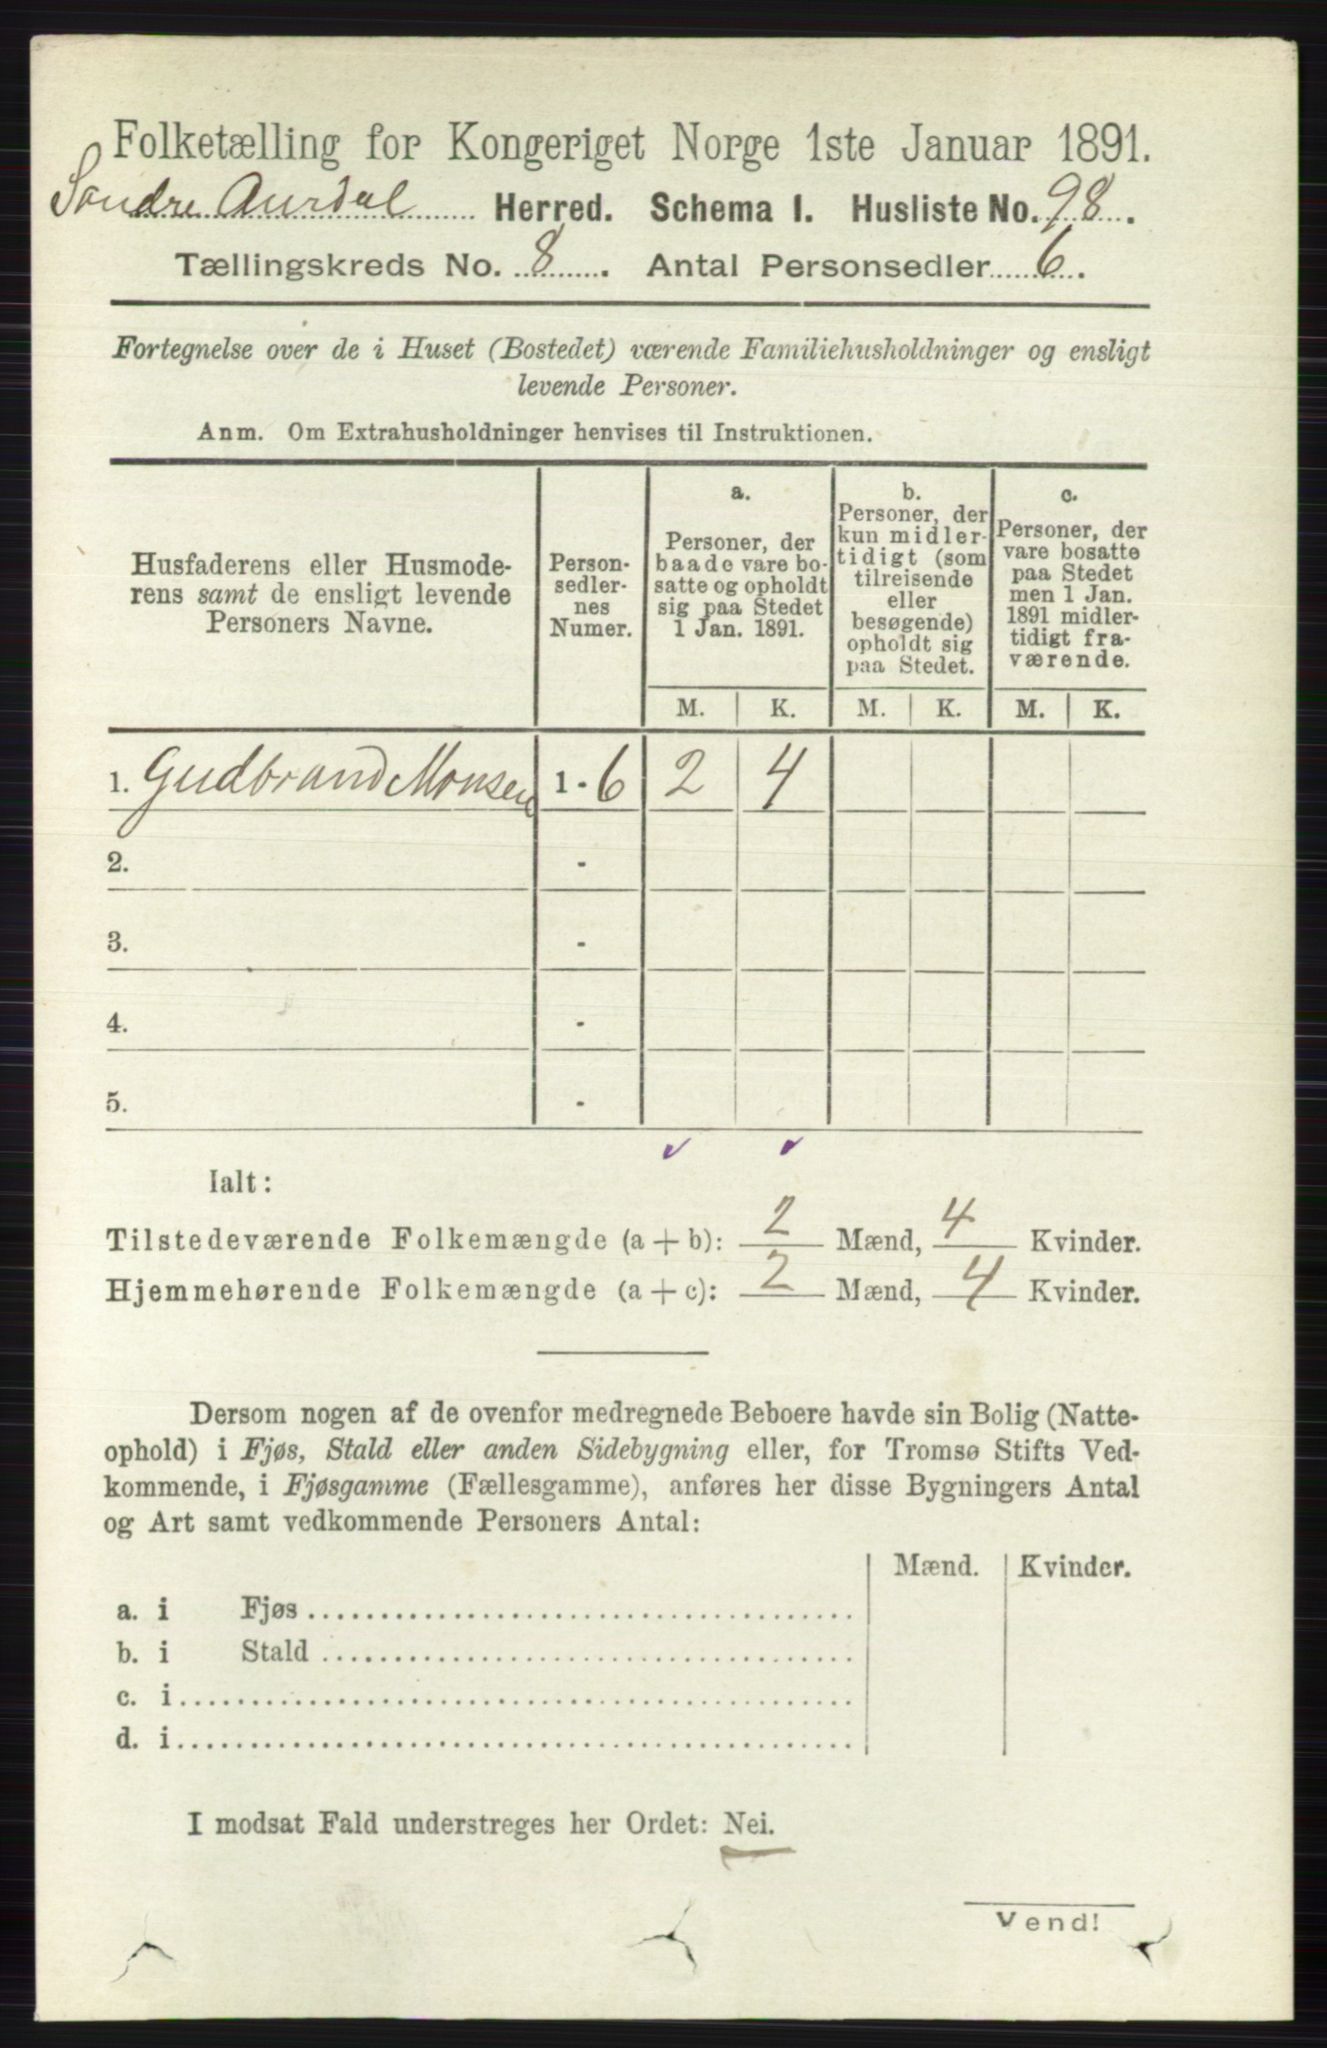 Folketælling for Kongeriget Norge 1ste Januar 1891.
Søndre Aurdal Herred. Schema I. Husliste No. 98.
Tællingskreds No. 8. Antal Personsedler 6.
Fortegnelse over de i Huset (Bostedet) værende Familiehusholdninger og ensligt
levende Personer.
Anm. Om Extrahusholdninger henvises til Instruktionen.
Husfaderens eller Husmode-
rens samt de ensligt levende
Personers Navne.
Person-
sedler-
nes
Numer.
a.
Personer, der
baade vare bo-
satte og opholdt
sig paa Stedet
1 Jan. 1891.
b.
Personer, der
kun midler-
tidigt (som
tilreisende
eller
besøgende)
opholdt sig
paa Stedet.
c.
Personer, der
vare bosatte
paa Stedet
men 1 Jan.
1891 midler-
tidigt fra-
værende.
M. K. M. K. M. K.
1. Gudbrand Monsen 1 - 6 2 4
2. -
3. -
4. -
5. -
Ialt:
Tilstedeværende Folkemængde (a + b): 2 Mænd, 4 Kvinder.
Hjemmehørende Folkemængde (a + c): 2 Mænd, 4 Kvinder.
Dersom nogen af de ovenfor medregnede Beboere havde sin Bolig (Natte-
ophold) i Fjøs, Stald eller anden Sidebygning eller, for Tromsø Stifts Ved-
kommende, i Fjøsgamme (Fællesgamme), anføres her disse Bygningers Antal
og Art samt vedkommende Personers Antal:
Mænd. Kvinder.
a. i Fjøs
b. i Stald
c. i
d. i
I modsat Fald understreges her Ordet: Nei.
Vend!